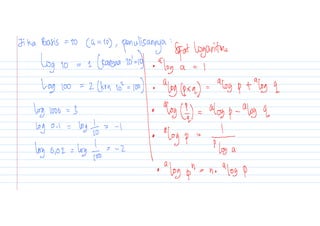 Jika Basis = 10 (a = 10), penulisannya :
log 10 = 1 (karena 10¹ = 10)
log 100 = 2 (krn 10² = 100)
log 1000 = 3
log 0.1 = log 1/10 = -1
log 0,01 = log 1/100 = -2
Sifat logaritma
• ᵃlog a = 1
• ᵃlog (p×q) = ᵃlog p + ᵃlog q
• ᵃlog (p/q) = ᵃlog p - ᵃlog q
• ᵃlog p = 1 / ᵖlog a
• ᵃlog pⁿ = n. ᵃlog p